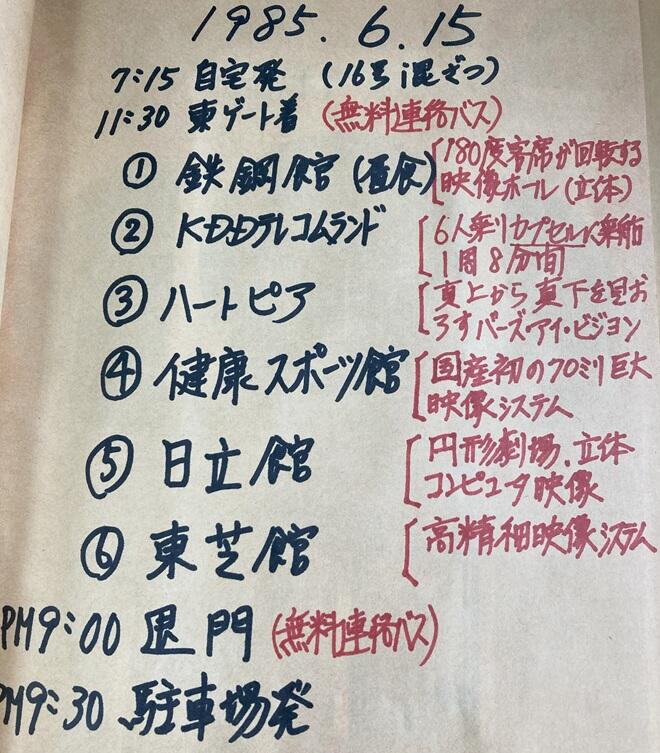 1985.6.15
7:15 自宅発 (16号混ざつ)
11:30 東ゲート着 (無料連絡バス)
① 鉄鋼館(昼食) 180度客席が回転する
映像ホール(立体)
② KDDテレコムランド 6人乗りカプセルに乗船
1周8分間
③ ハートピア 真上から真下を見お
ろすバーズ・アイ・ビジョン
④ 健康スポーツ館 国産初の70ミリ巨大
映像システム
⑤ 日立館 円形劇場、立体
コンピュータ映像
⑥ 東芝館 高精細映像システム
PM9:00 退門 (無料連絡バス)
PM9:30 駐車場発